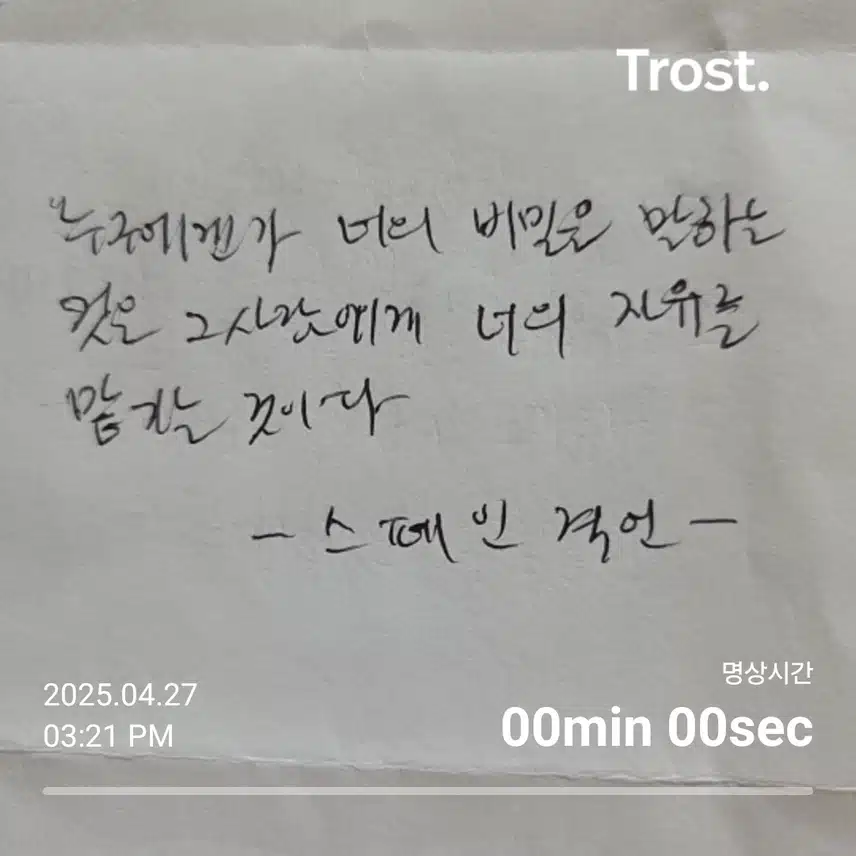 Trost.
"누구에겐가 너의 비밀을 말하는
것은 그사람에게 너의 자유를
맡기는 것이다
- 스페인 격언 -
명상시간
2025.04.27
00min 00sec
03:21 PM